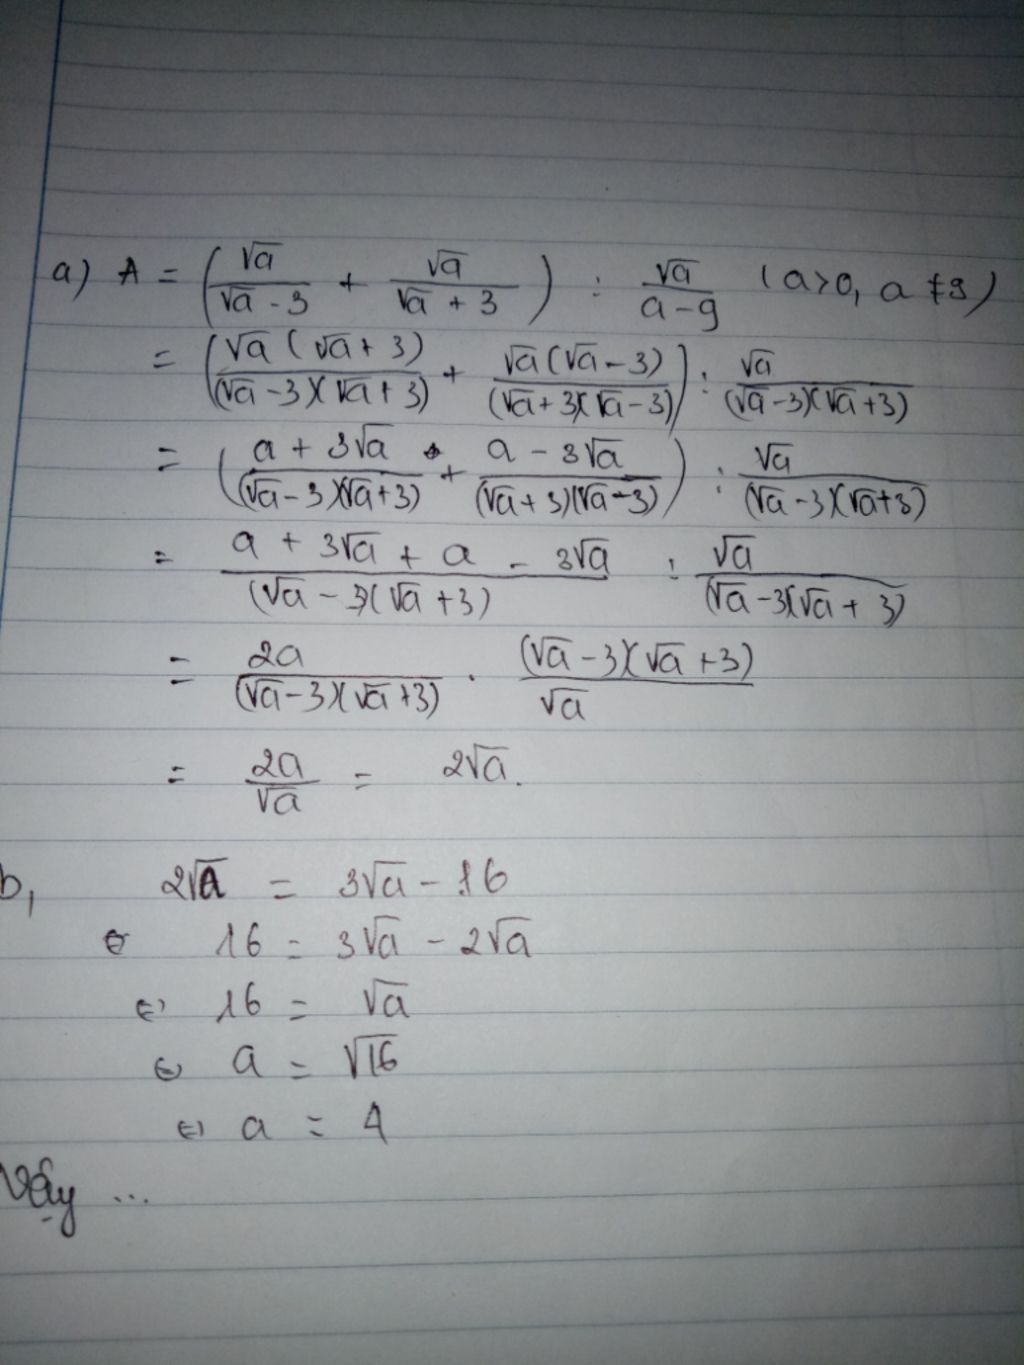 a) A = (√a/(√a - 3) + √a/(√a + 3)) : √a/(a - 9) (a>0, a ≠ 9)
= (√a(√a + 3)/((√a - 3)(√a + 3)) + √a(√a - 3)/((√a + 3)(√a - 3))) : √a/((√a - 3)(√a + 3))
= ((a + 3√a)/((√a - 3)(√a + 3)) + (a - 3√a)/((√a + 3)(√a - 3))) : √a/((√a - 3)(√a + 3))
= (a + 3√a + a - 3√a)/((√a - 3)(√a + 3)) : √a/((√a - 3)(√a + 3))
= 2a/((√a - 3)(√a + 3)) . (√a - 3)(√a + 3)/√a
= 2a/√a = 2√a.
b, 2√a = 3√a - 16
⇔ 16 = 3√a - 2√a
⇔ 16 = √a
⇔ a = √16
⇔ a = 4
Vậy ...